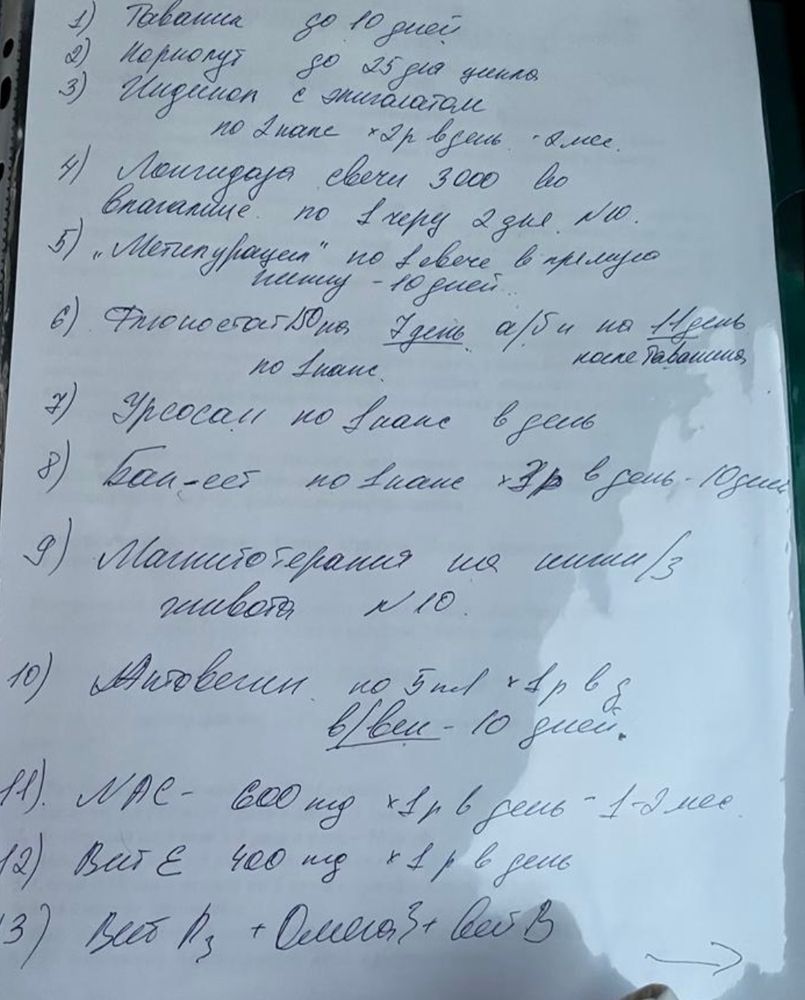 1) Таваник до 10 дней
2) Норколут до 25 дня цикла
3) Индинол с эпигалатом
по 2 капс х 2р в день - 2 мес.
4) Лонгидаза свечи 3000 во
влагалище по 1 черу 2 дня N10.
5) „Метилурацил" по 1 свече в прямую
кишку - 10 дней.
6) Флюкостат 150 на 7 день а/б и на 11 день
после Таваника
по 1 капс.
7) Урсосан по 1 капс в день
8) Бак-сет по 1 капс х 3р в день - 10 дней
9) Магнитотерапия на нижн/з
живота N 10.
10) Актовегин по 5 мл х 1 р в д
в/вен - 10 дней.
11). NAC - 600 mg х 1 р в день - 1-2 мес.
12) Вит E 400 mg х 1 р в день
3) Вит D3 + Омега 3 + вит В